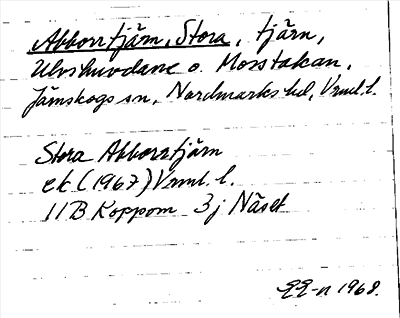 Abborrtjärn, Stora, tjärn,
Ulvshuvdane o. Mosstakan,
Järnskogs sn, Nordmarks hd, Vrml. l.
Stora Abborrtjärn
ek (1967) Vrml. l.
11B Koppom 3j Näset
1968.